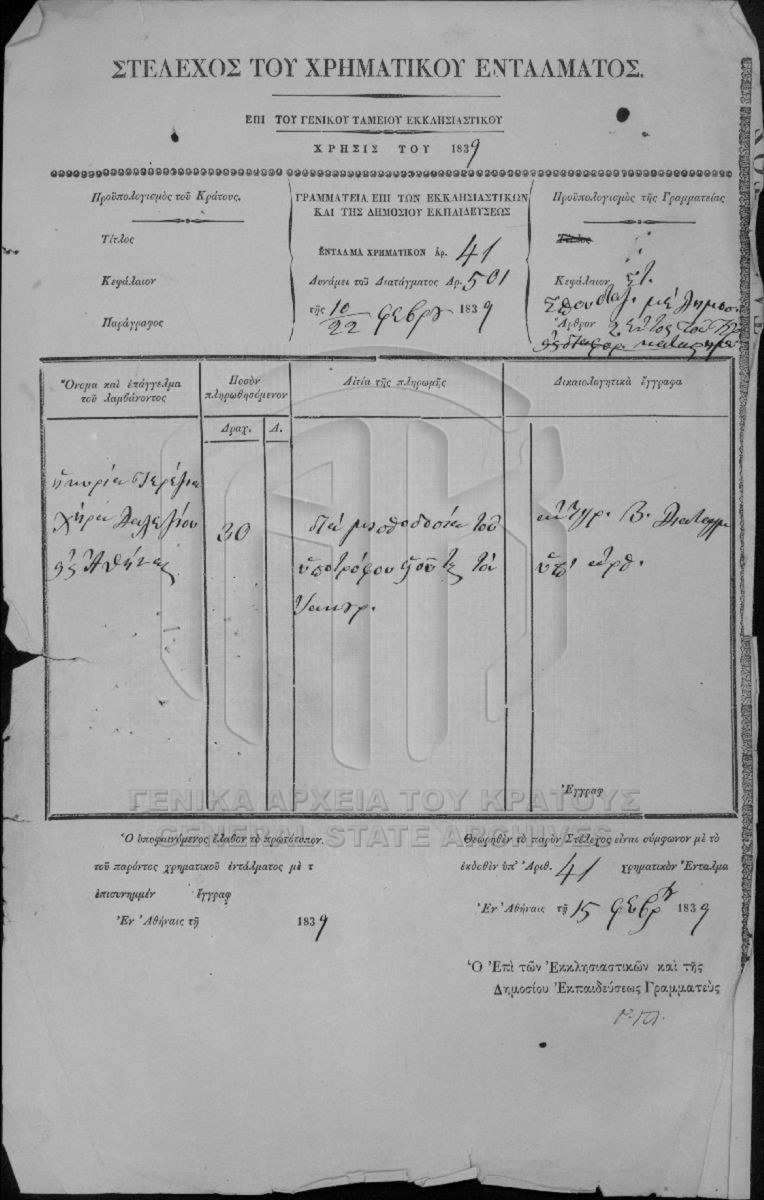 ΣΤΕΛΕΧΟΣ ΤΟΥ ΧΡΗΜΑΤΙΚΟΥ ΕΝΤΑΛΜΑΤΟΣ.
ΕΠΙ ΤΟΥ ΓΕΝΙΚΟΥ ΤΑΜΕΙΟΥ ΕΚΚΛΗΣΙΑΣΤΙΚΟΥ
ΧΡΗΣΙΣ ΤΟΥ 1839
Προϋπολογισμὸς τοῦ Κράτους.
Τίτλος
Κεφάλαιον
Παράγραφος
ΓΡΑΜΜΑΤΕΙΑ ΕΠΙ ΤΩΝ ΕΚΚΛΗΣΙΑΣΤΙΚΩΝ
ΚΑΙ ΤΗΣ ΔΗΜΟΣΙΟΥ ΕΚΠΑΙΔΕΥΣΕΩΣ
ΕΝΤΑΛΜΑ ΧΡΗΜΑΤΙΚΟΝ Ἀρ. 41
Δυνάμει τοῦ Διατάγματος Αρ. 501
τῆς 10/22 φεβρ 1839
Προϋπολογισμὸς τῆς Γραμματείας
Τίτλος
Κεφάλαιον
Ἄρθρον 2
Ὄνομα καὶ ἐπάγγελμα
τοῦ λαμβάνοντος
Ποσὸν
πληρωθησόμενον
Δραχ. Λ.
Αἰτία τῆς πληρωμῆς
Δικαιολογητικὰ ἔγγραφα
χήρα
Ἀθήνας
30
διὰ μισθοδοσίαν τοῦ
ὑποτρόφου
Β. Διαταγμ
Ἔγγραφ
ΓΕΝΙΚΑ ΑΡΧΕΙΑ ΤΟΥ ΚΡΑΤΟΥΣ
GENERAL STATE ARCHIVES
Ὁ ὑποφαινόμενος ἔλαβον τὸ πρωτότυπον
τοῦ παρόντος χρηματικοῦ ἐντάλματος μὲ τ
ἐπισυνημμέν ἔγγραφ
Ἐν Ἀθήναις τῇ 1839
Θεωρηθὲν τὸ παρὸν Στέλεχος εἶναι σύμφωνον μὲ τὸ
ἐκδοθὲν ὑπ' Ἀριθ. 41 χρηματικὸν Ἔνταλμα
Ἐν Ἀθήναις τῇ 15 φεβρ 1839
Ὁ Ἐπὶ τῶν Ἐκκλησιαστικῶν καὶ τῆς
Δημοσίου Ἐκπαιδεύσεως Γραμματεὺς